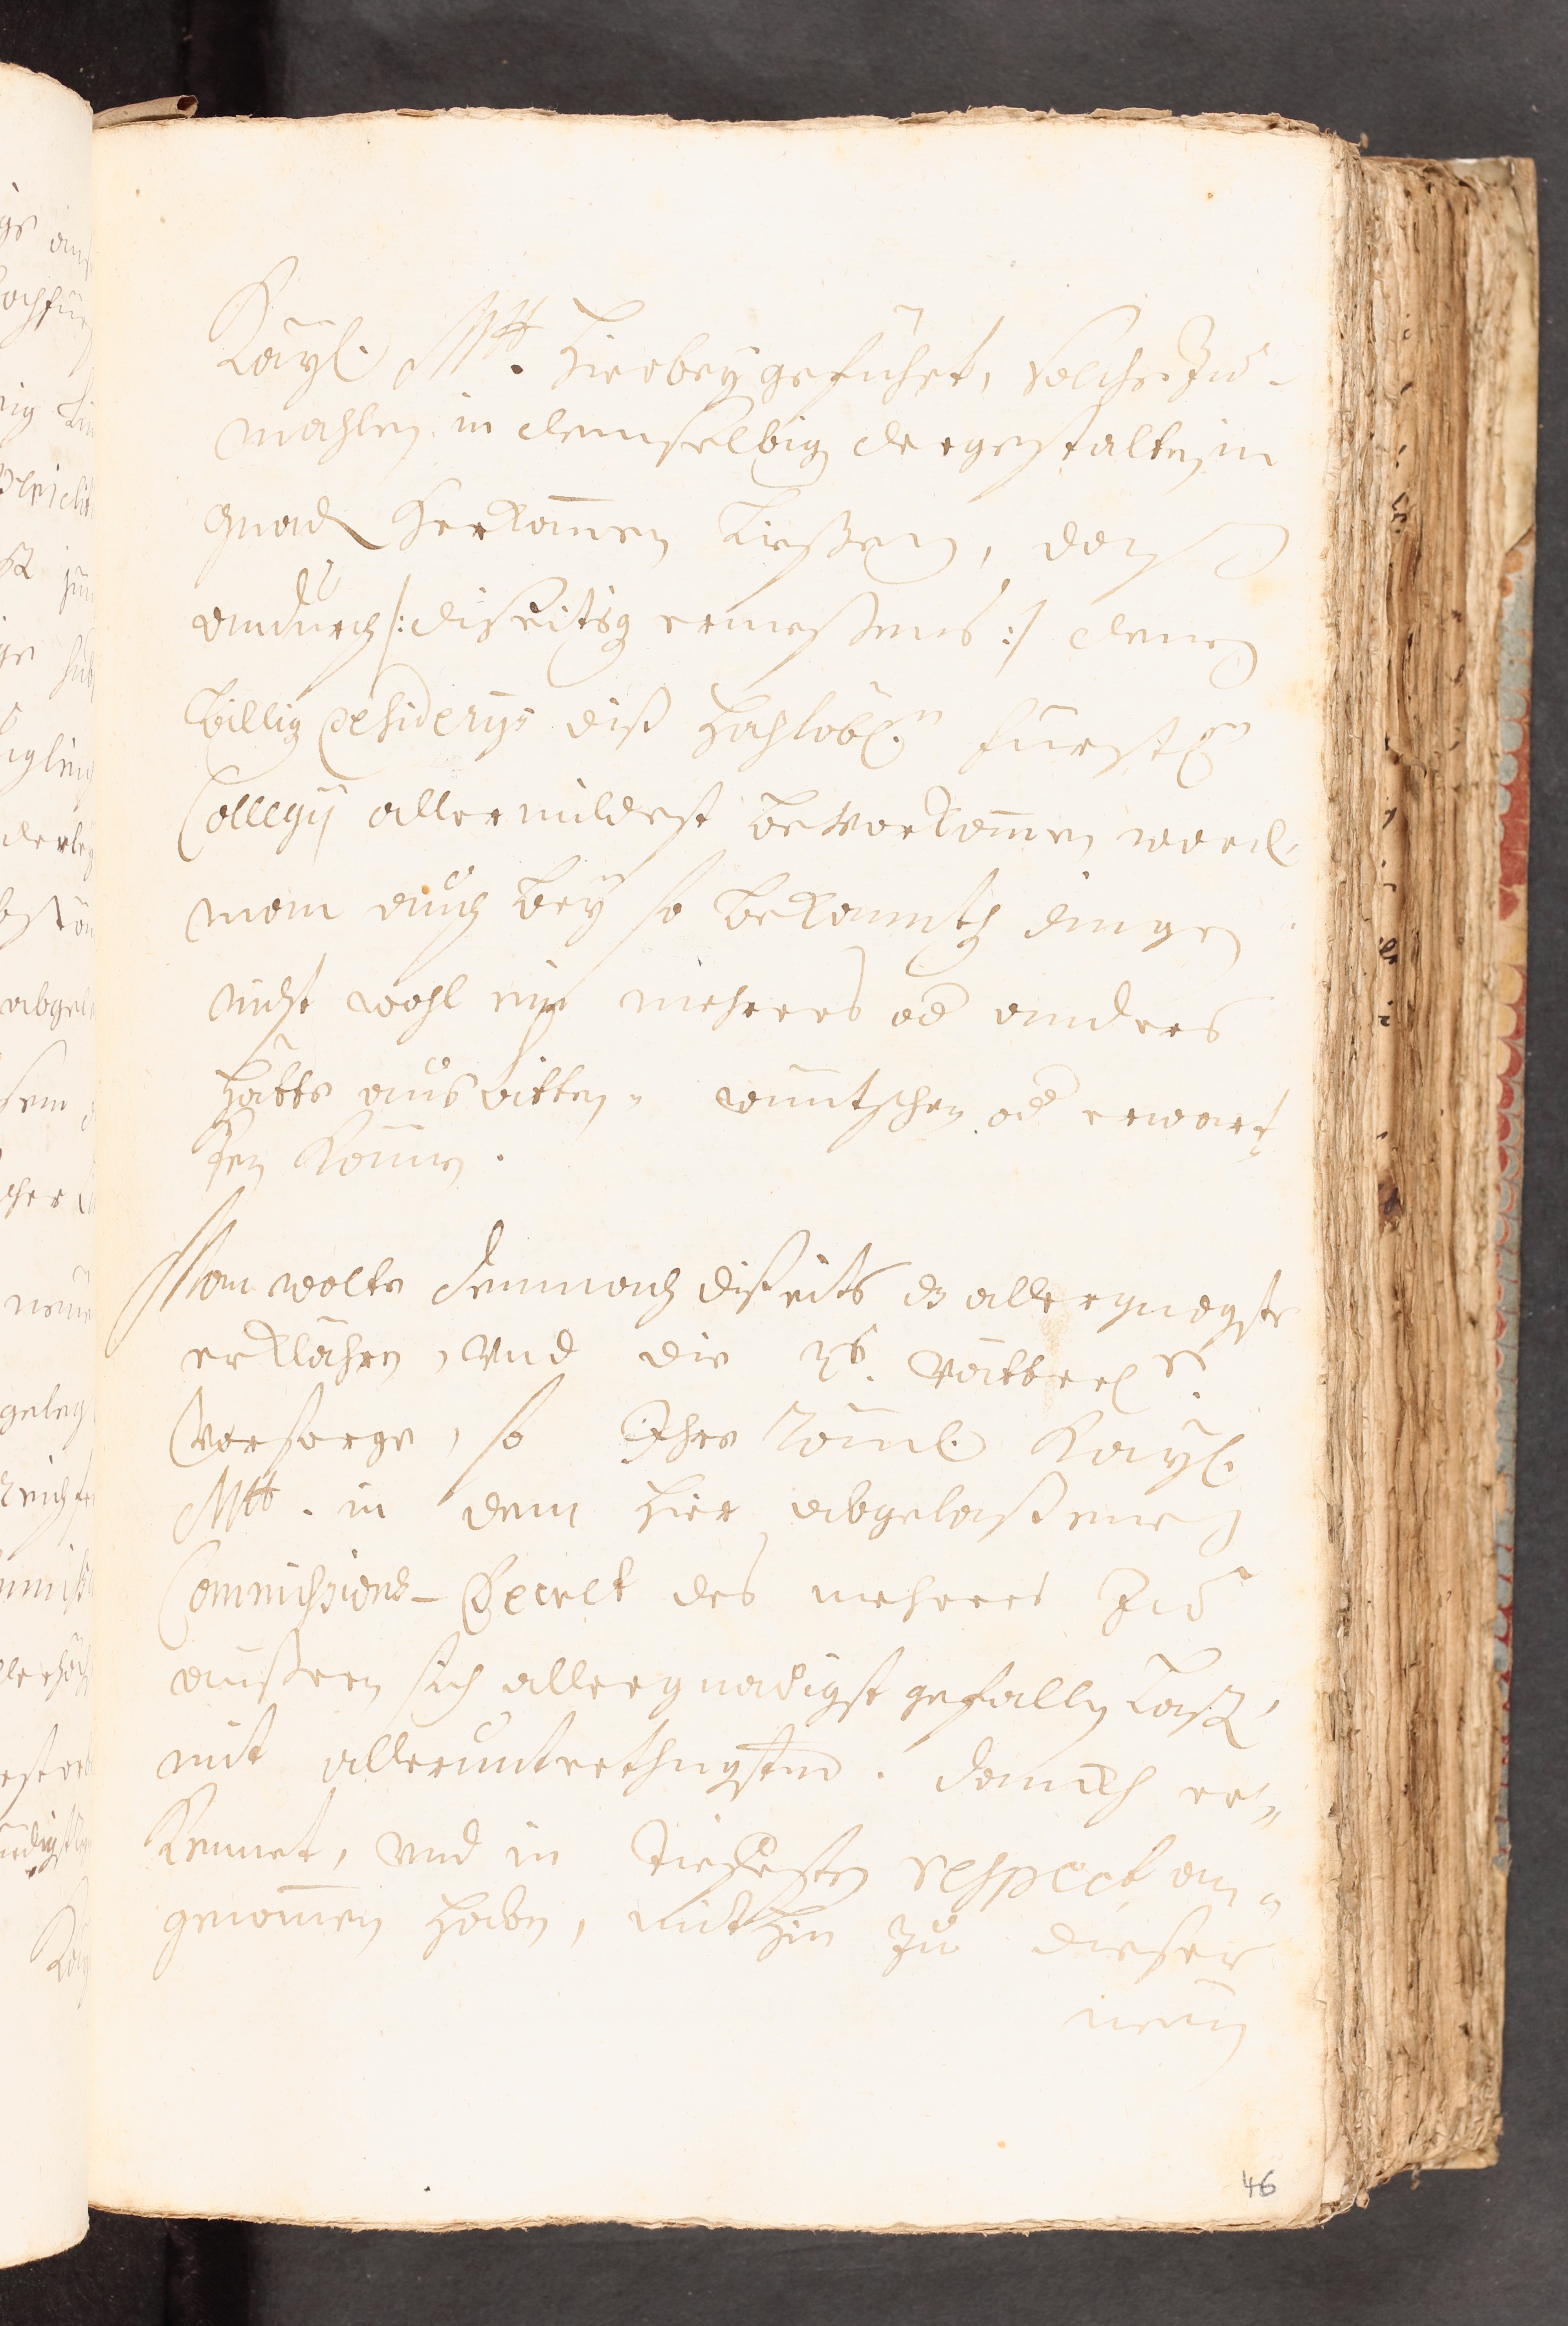 Kayl. Mtt. hierbey geführt, solche zu-
mahlen in demselbig dergestalten in
gnad herkomen ließen, daß
andurch /: disseitig ermessens :/ denen
billig Desiderijs diß hochlöbl.n fürstl.n
Collegij allermildest bevorkomen word.
man auch bey so bekannten dingen
nicht wohl ein mehrers od anders
hätte ausbitten, wüntschen od erwart
ten können.
Man wolte demnach disseits dz allergnägste
erklähren, und die rs. Vätterl.
Vorsorge, so Ihre Röml. Kayl.
Mtt. in dem hier abgelaßenen
Commissions-Decret des mehrers zu
äussern sich allergnädigst gefallen laß,
mit alleruntrethngsten. danckh er-
kennet, und in tieffesten respect an-
genomen haben, mithin zu dieser
46